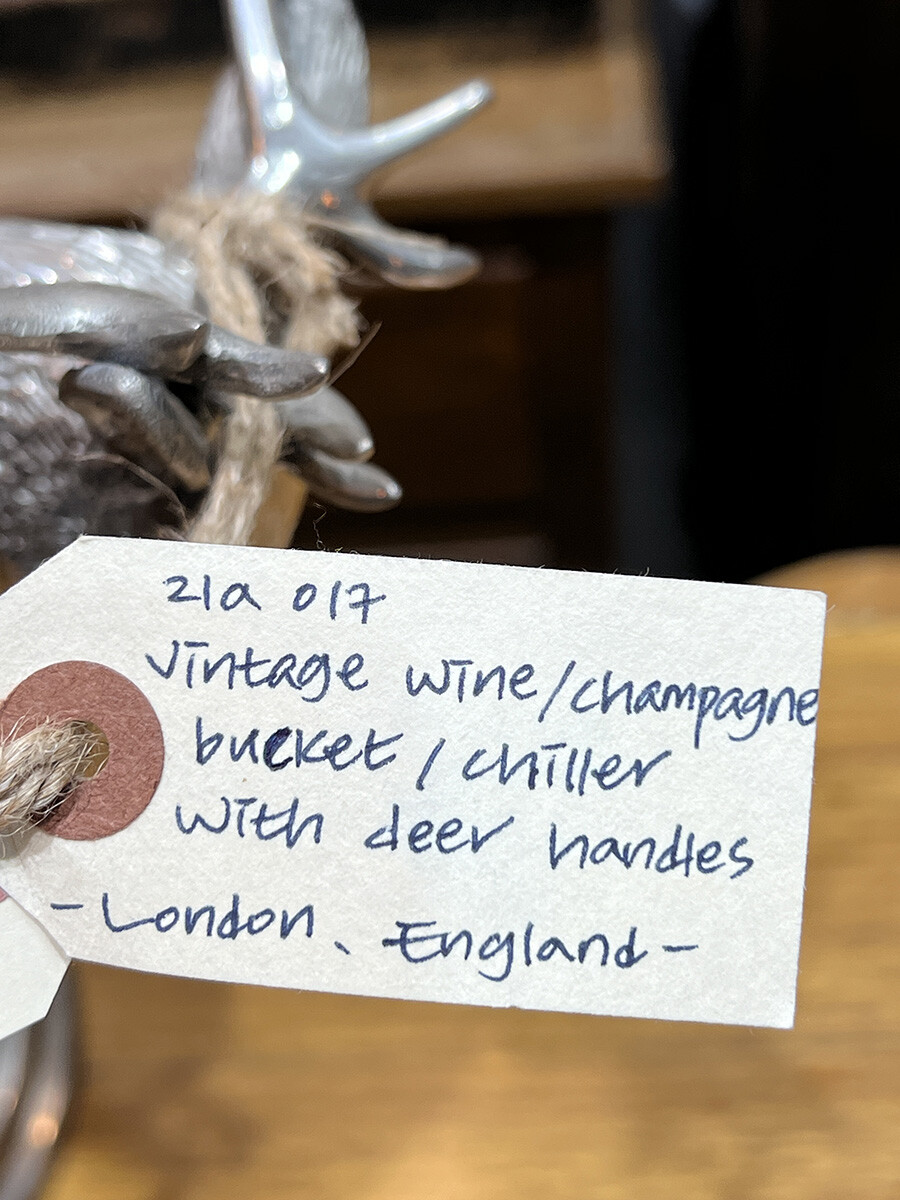 21a 017
vintage wine/champagne
bucket / chiller
with deer handles
- London, England -